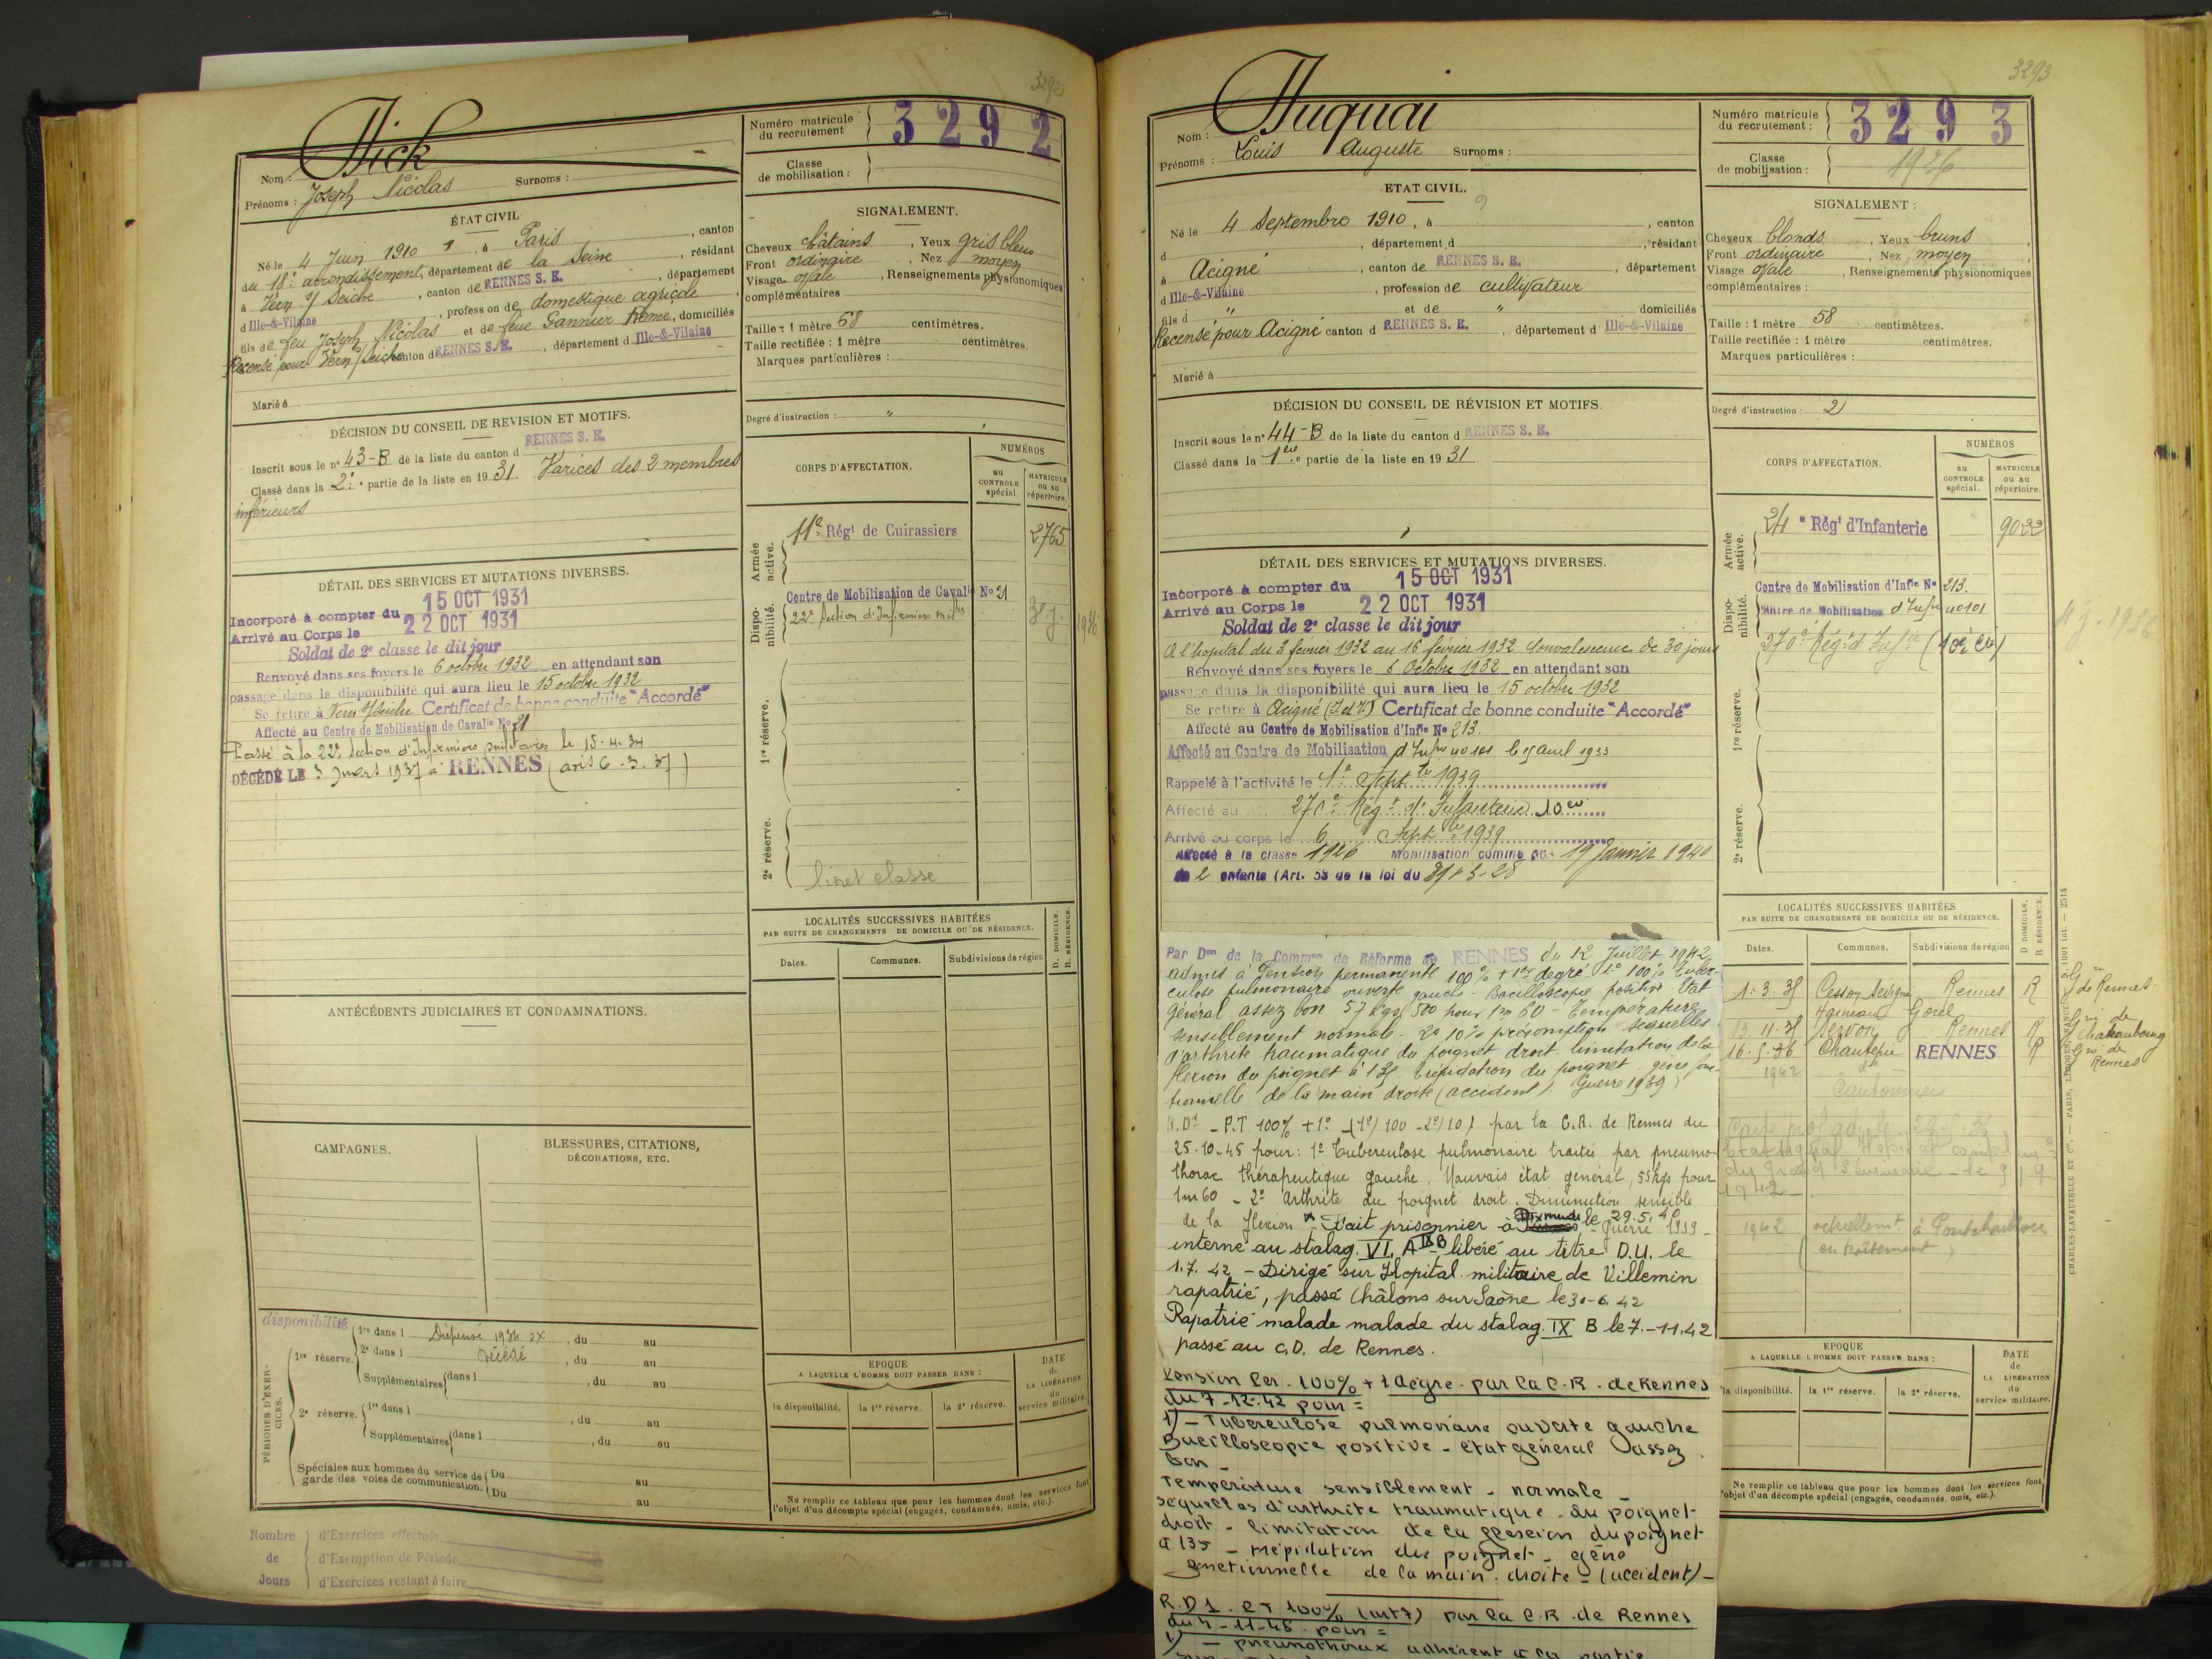 3292
Nick
Nom :
Prénoms : Joseph Nicolas Surnoms :
Numéro matricule du recrutement 3292
Classe de mobilisation :
ÉTAT CIVIL
Né le 4 Juin 1910, à Paris, canton
du 18e arrondissement, département de la Seine, résidant
à Vern s/ Seiche, canton de RENNES S. E., département
d Ille-&-Vilaine, profession de domestique agricole
fils de feu Joseph Nicolas et de feue Gannier, domiciliés
Recensé pour Vern s/ Seiche canton d RENNES S. E., département d Ille-&-Vilaine
Marié à
SIGNALEMENT.
Cheveux châtains, Yeux gris bleus
Front ordinaire, Nez moyen
Visage ovale, Renseignements physionomiques
complémentaires
Taille : 1 mètre 68 centimètres.
Taille rectifiée : 1 mètre centimètres.
Marques particulières :
Degré d'instruction : "
DÉCISION DU CONSEIL DE REVISION ET MOTIFS.
Inscrit sous le n° 43-B de la liste du canton d RENNES S. E.
Classé dans la 2e partie de la liste en 1931. Varices des 2 membres
inférieurs
CORPS D'AFFECTATION.
NUMÉROS
au CONTROLE spécial.
MATRICULE ou au répertoire.
Armée active.
11e Régt de Cuirassiers 2765
Dispo-nibilité.
Centre de Mobilisation de Cavalie N° 21
22e Section d'Infirmiers milres
1re réserve.
2e réserve.
livret classé
DÉTAIL DES SERVICES ET MUTATIONS DIVERSES.
Incorporé à compter du 15 OCT 1931
Arrivé au Corps le 22 OCT 1931
Soldat de 2e classe le dit jour
Renvoyé dans ses foyers le 6 octobre 1932 en attendant son
passage dans la disponibilité qui aura lieu le 15 octobre 1932
Se retire à Vern s/Seiche Certificat de bonne conduite "Accordé"
Affecté au Centre de Mobilisation de Cavalie N° 21
Passé à la 22e Section d'Infirmiers militaires le 15-4-34
DÉCÉDÉ LE 3 mars 1937 à RENNES (avis 6-3-37)
ANTÉCÉDENTS JUDICIAIRES ET CONDAMNATIONS.
LOCALITÉS SUCCESSIVES HABITÉES
PAR SUITE DE CHANGEMENTS DE DOMICILE OU DE RÉSIDENCE.
D. DOMICILE. R. RÉSIDENCE.
Dates. Communes. Subdivisions de région
CAMPAGNES.
BLESSURES, CITATIONS,
DÉCORATIONS, ETC.
PÉRIODES D'EXERCICES.
disponibilité
1re dans l Dispensé 1934, du au
1re réserve. 2e dans l décédé, du au
Supplémentaires dans l, du au
2e réserve. 1re dans l, du au
Supplémentaires dans l, du au
Spéciales aux hommes du service de garde des voies de communication. Du au
Du au
EPOQUE
A LAQUELLE L'HOMME DOIT PASSER DANS :
la disponibilité. la 1re réserve. la 2e réserve.
DATE de LA LIBÉRATION du service militaire.
Ne remplir ce tableau que pour les hommes dont les services font
l'objet d'un décompte spécial (engagés, condamnés, omis, etc.).
Nombre de Jours
d'Exercices effectués
d'Exemption de Période
d'Exercices restant à faire
3293
Nom :
Prénoms : Louis Auguste Surnoms :
Numéro matricule du recrutement : 3293
Classe de mobilisation : 1926
ETAT CIVIL.
Né le 4 Septembre 1910, à , canton
d , département d , résidant
à Acigné, canton de RENNES S. E., département
d Ille-&-Vilaine, profession de cultivateur
fils d " et de " domiciliés
Recensé pour Acigné canton d RENNES S. E., département d Ille-&-Vilaine
Marié à
SIGNALEMENT :
Cheveux blonds, Yeux bruns
Front ordinaire, Nez moyen
Visage ovale, Renseignements physionomiques
complémentaires :
Taille : 1 mètre 58 centimètres.
Taille rectifiée : 1 mètre centimètres.
Marques particulières :
Degré d'instruction : 2
DÉCISION DU CONSEIL DE RÉVISION ET MOTIFS.
Inscrit sous le n° 44-B de la liste du canton d RENNES S. E.
Classé dans la 1ère partie de la liste en 1931
CORPS D'AFFECTATION.
NUMÉROS
au CONTROLE spécial.
MATRICULE ou au répertoire.
Armée active.
Rég' d'Infanterie 9022
Dispo-nibilité.
Centre de Mobilisation d'Infie N° 213.
Centre de Mobilisation d'Infie n° 101
270e Régt d'Infie (10e Cie)
1re réserve.
2e réserve.
DÉTAIL DES SERVICES ET MUTATIONS DIVERSES.
Incorporé à compter du 15 OCT 1931
Arrivé au Corps le 22 OCT 1931
Soldat de 2e classe le dit jour
A l'hopital du 3 février 1932 au 16 février 1932 Convalescence de 30 jours
Renvoyé dans ses foyers le 6 Octobre 1932 en attendant son
passage dans la disponibilité qui aura lieu le 15 octobre 1932
Se retire à Acigné (I et V) Certificat de bonne conduite "Accordé"
Affecté au Centre de Mobilisation d'Infie N° 213.
Affecté au Centre de Mobilisation d'Infie n° 101 le 15 avril 1933
Rappelé à l'activité le 1e Septbre 1939
Affecté au 270e Régt d'Infanterie 10e
Arrivé au corps le 6 Septbre 1939
Affecté à la classe 1926 Mobilisation comme père 19 Janvier 1940
de 2 enfants (Art. 58 de la loi du 31-3-28
Par Don de la Common de Réforme de RENNES du 12 Juillet 1942
admis à Pension permanente 100% + 1er degré 1° 100% Tuber-
culose pulmonaire ouverte gauche - Bacilloscopie positive Etat
général assez bon 57 kgs 500 pour 1m 60 - Température
sensiblement normale - 2° 10% présomption séquelles
d'arthrite traumatique du poignet droit limitation de la
flexion du poignet à 135 trépidation du poignet gêne fonc-
tionnelle de la main droite (accident). Guerre 1939)
R.D1 - P.T 100% + 1° - (1°) 100 - 2°) 10) par la C.R. de Rennes du
25-10-45 pour : 1° Tuberculose pulmonaire traitée par pneumo-
thorax thérapeutique gauche, Mauvais état général, 55 kgs pour
1m60 - 2° Arthrite du poignet droit. Diminution sensible
de la flexion - Fait prisonnier à Dixmude le 29.5.40 Guerre 1939 -
interné au stalag VI A IX B - libéré au titre D.U. le
1.7.42 - Dirigé sur Hopital militaire de Villemin
rapatrié, passé Châlons sur Saône le 30-6.42
Rapatrié malade malade du stalag IX B le 7.-11.42
passé au C.D. de Rennes.
Pension Per. 100% + 1 degré par la C.R. de Rennes
du 7-12-42 pour =
1) - Tuberculose pulmonaire ouverte gauche
Bacilloscopie positive - état général assez
bon -
Température sensiblement - normale -
séquelles d'arthrite traumatique du poignet
droit - limitation de la flexion du poignet
à 135 - trépidation du poignet - gêne
fonctionnelle de la main droite - (accident) -
R.D1. P.T 100% (art 7) par la C.R. de Rennes
pour =
1) - pneumothorax adhérent à la partie
LOCALITÉS SUCCESSIVES HABITÉES
PAR SUITE DE CHANGEMENTS DE DOMICILE OU DE RÉSIDENCE.
D DOMICILE, R RÉSIDENCE.
Dates. Communes. Subdivisions de région
1.3.35 Cesson Sévigné Rennes R Gie de Rennes
13.11.35 Servon Rennes R Gie de Chateaubourg
16.5.36 Chantepie RENNES R Gie de Rennes
1942
Cantonnier
1942 actuellement à Pontchaillou
(en traitement)
EPOQUE
A LAQUELLE L'HOMME DOIT PASSER DANS :
la disponibilité. la 1re réserve. la 2e réserve.
DATE de LA LIBÉRATION du service militaire.
Ne remplir ce tableau que pour les hommes dont les services font
l'objet d'un décompte spécial (engagés, condamnés, omis, etc.).